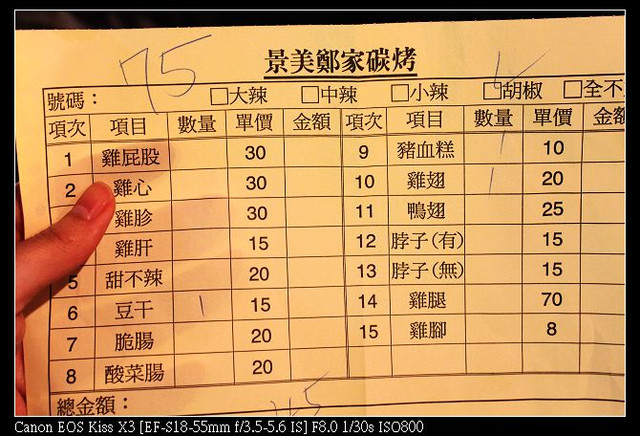 景美鄭家碳烤
號碼： 75 □大辣 □中辣 □小辣 □胡椒 □全不
項次 項目 數量 單價 金額 項次 項目 數量 單價 金額
1 雞屁股 30 9 豬血糕 1 10
2 雞心 30 10 雞翅 1 20
雞胗 30 11 鴨翅 25
雞肝 15 12 脖子(有) 15
5 甜不辣 20 13 脖子(無) 15
6 豆干 1 15 14 雞腿 70
7 脆腸 20 15 雞腳 8
8 酸菜腸 20
總金額： 45
Canon EOS Kiss X3 [EF-S18-55mm f/3.5-5.6 IS] F8.0 1/30s ISO800